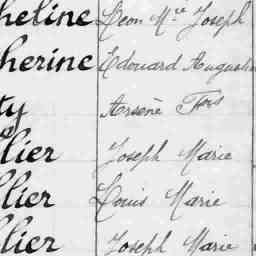 heline Léon Mie Joseph
herine Edouard Augustin
ty Arsène Fçois
llier Joseph Marie
llier Louis Marie
llier Joseph Marie